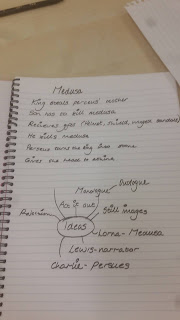 Medusa
King wants perseus' mother
Son has to kill medusa
Recieves gifts (Helmet, shield, winged sandals)
He kills medusa
Perseus turns the king into stone
Gives the head to athena
Monologue
Duologue
Act it out
Still images
Ideas
Lorna - Medusa
Lewis - narrasor
Charlie - Persues